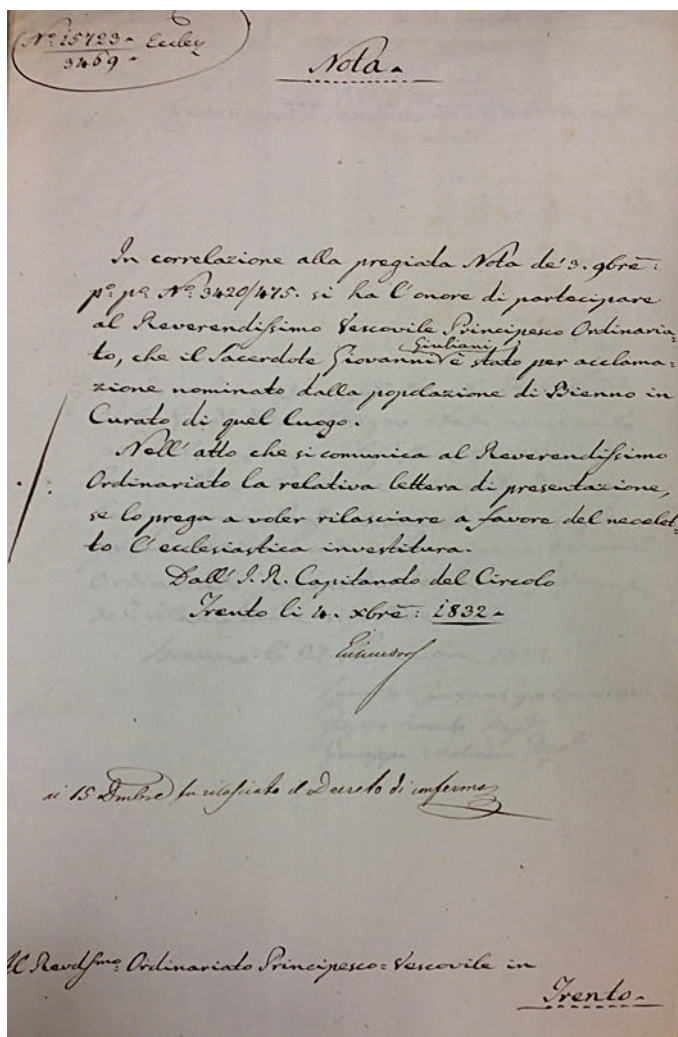 Nº 15723 - Eccley
3469 -
Nota -
In correlazione alla pregiata Nota de' 3. 9bre:
pº pº Nº 3420/475. si ha l'onore di partecipare
al Reverendissimo Vescovile Principesco Ordinaria-
Giuliani
to, che il Sacerdote Giovanni è stato per acclama-
zione nominato dalla popolazione di Bienno in
Curato di quel luogo.
Nell' atto che si comunica al Reverendissimo
Ordinariato la relativa lettera di presentazione,
se lo prega a voler rilasciare a favore del neoelet-
to l'ecclesiastica investitura.
Dall' I. R. Capitanato del Circolo
Trento li 4. xbre: 1832 -
ai 15 Dmbre fu rilasciato il Decreto di conferma
Al Revdssmo Ordinariato Principesco = Vescovile in
Trento -